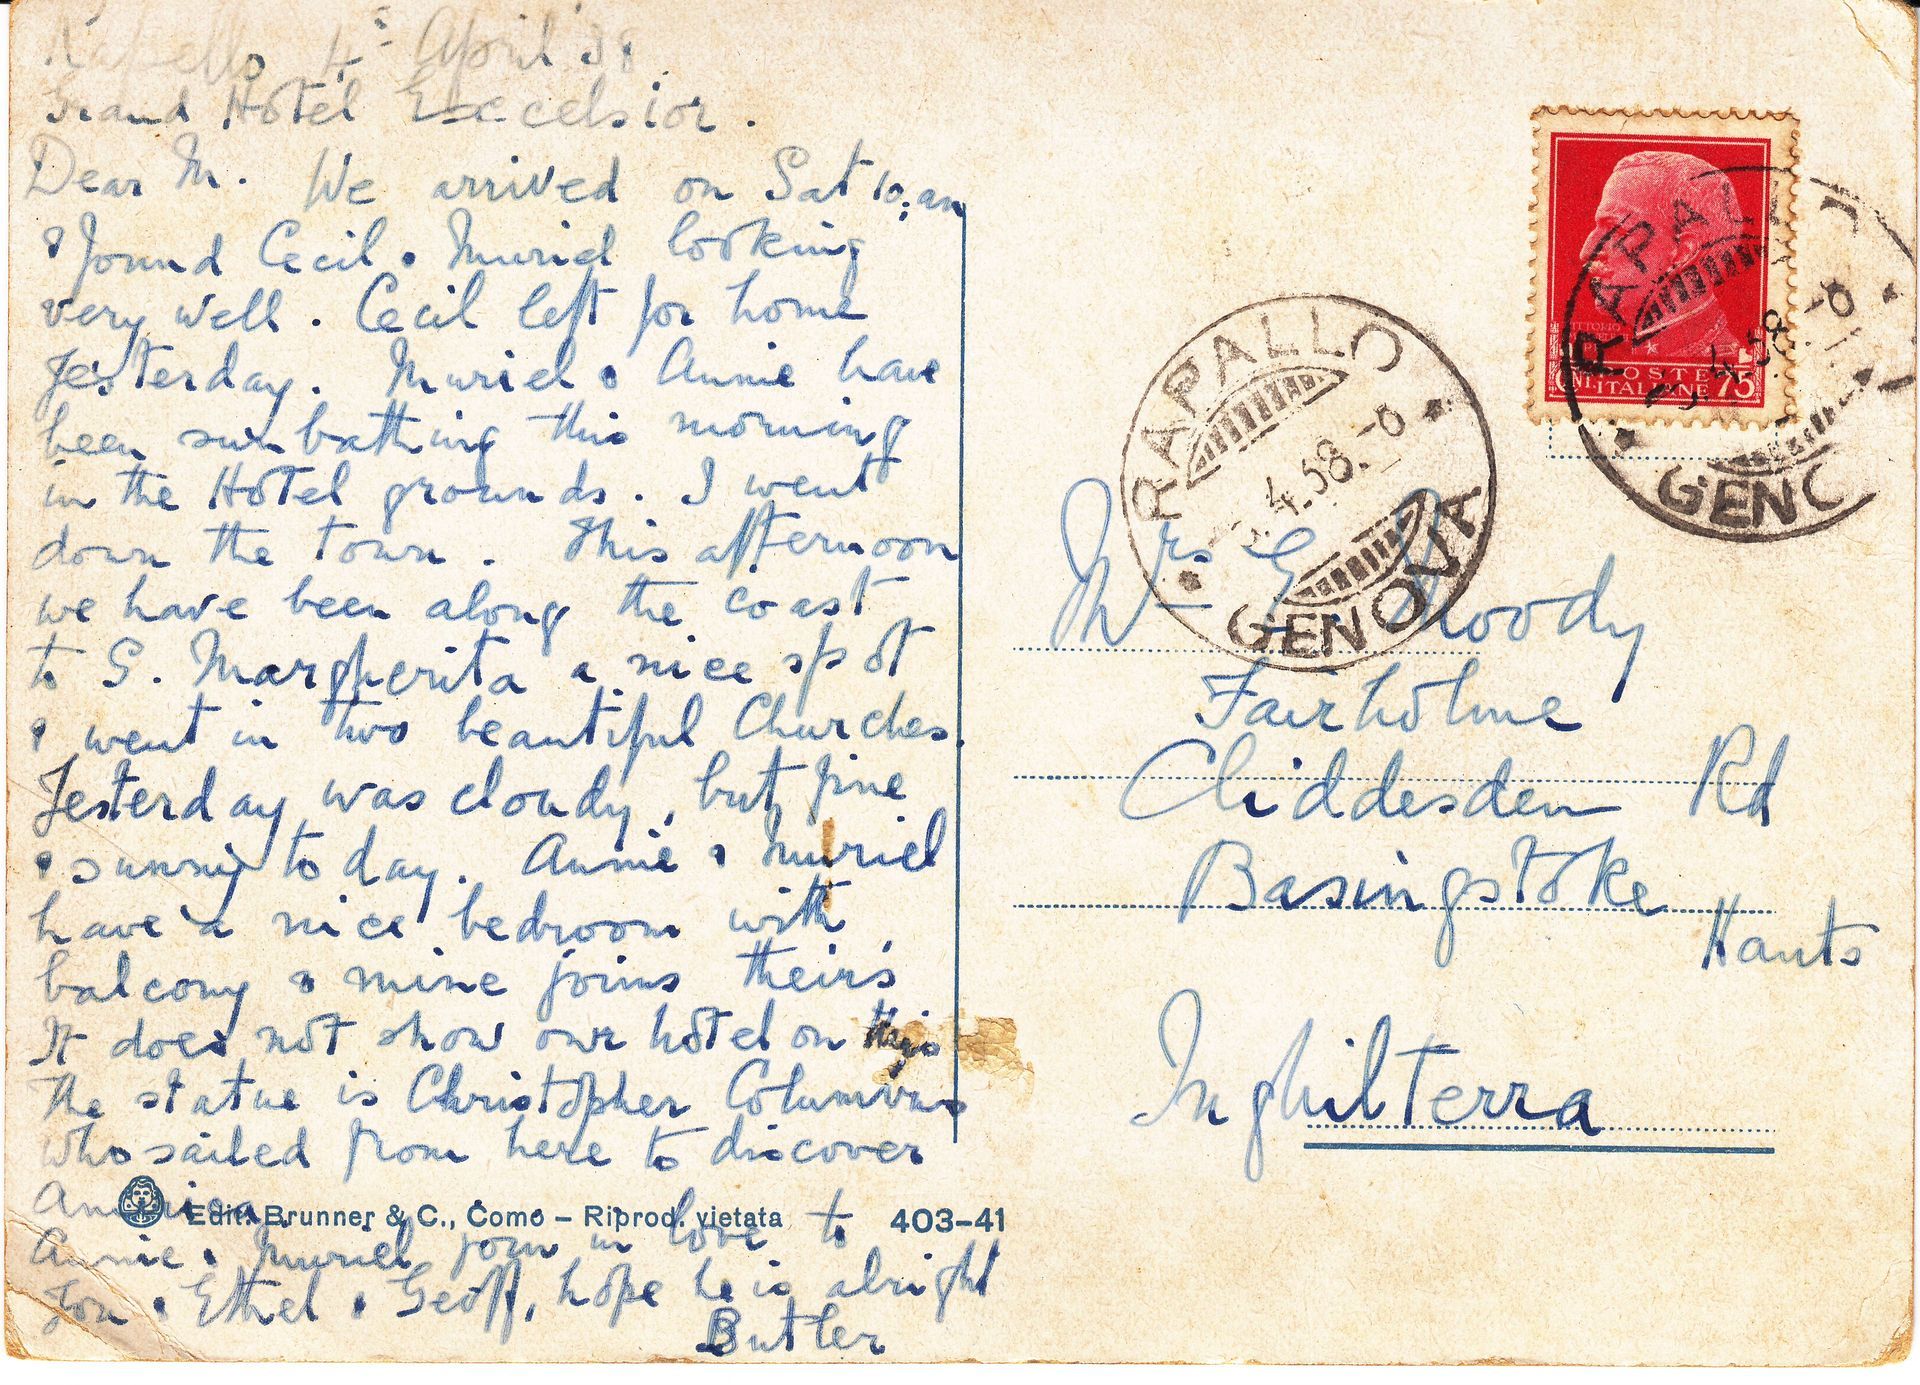 Rapello 4th April 38.
Grand Hotel Excelsior.
Dear M. We arrived on Sat 10,am
& found Cecil & Muriel looking
very well. Cecil left for home
Yesterday. Muriel & Annie have
been sun bathing this morning
in the Hotel grounds. I went
down the town. This afternoon
we have been along the coast
to S. Margherita a nice spot
& went in two beautiful Churches.
Yesterday was cloudy, but fine
& sunny to day. Annie & Muriel
have a nice bedroom with
balcony & mine joins their's
It does not show our hotel on this
The statue is Christopher Columbus
who sailed from here to discover
America.
Annie & Muriel join in love to
You & Ethel & Geoff, hope he is alright
Butler
Edit. Brunner & C., Como – Riprod. vietata 403-41
POSTE
ITALIANE
CENT. 75
RAPALLO
GENOVA
RAPALLO
4.38.
GENOVA
Mrs G. Moody
Fairholme
Cliddesden Rd
Basingstoke
Hants
Inghilterra